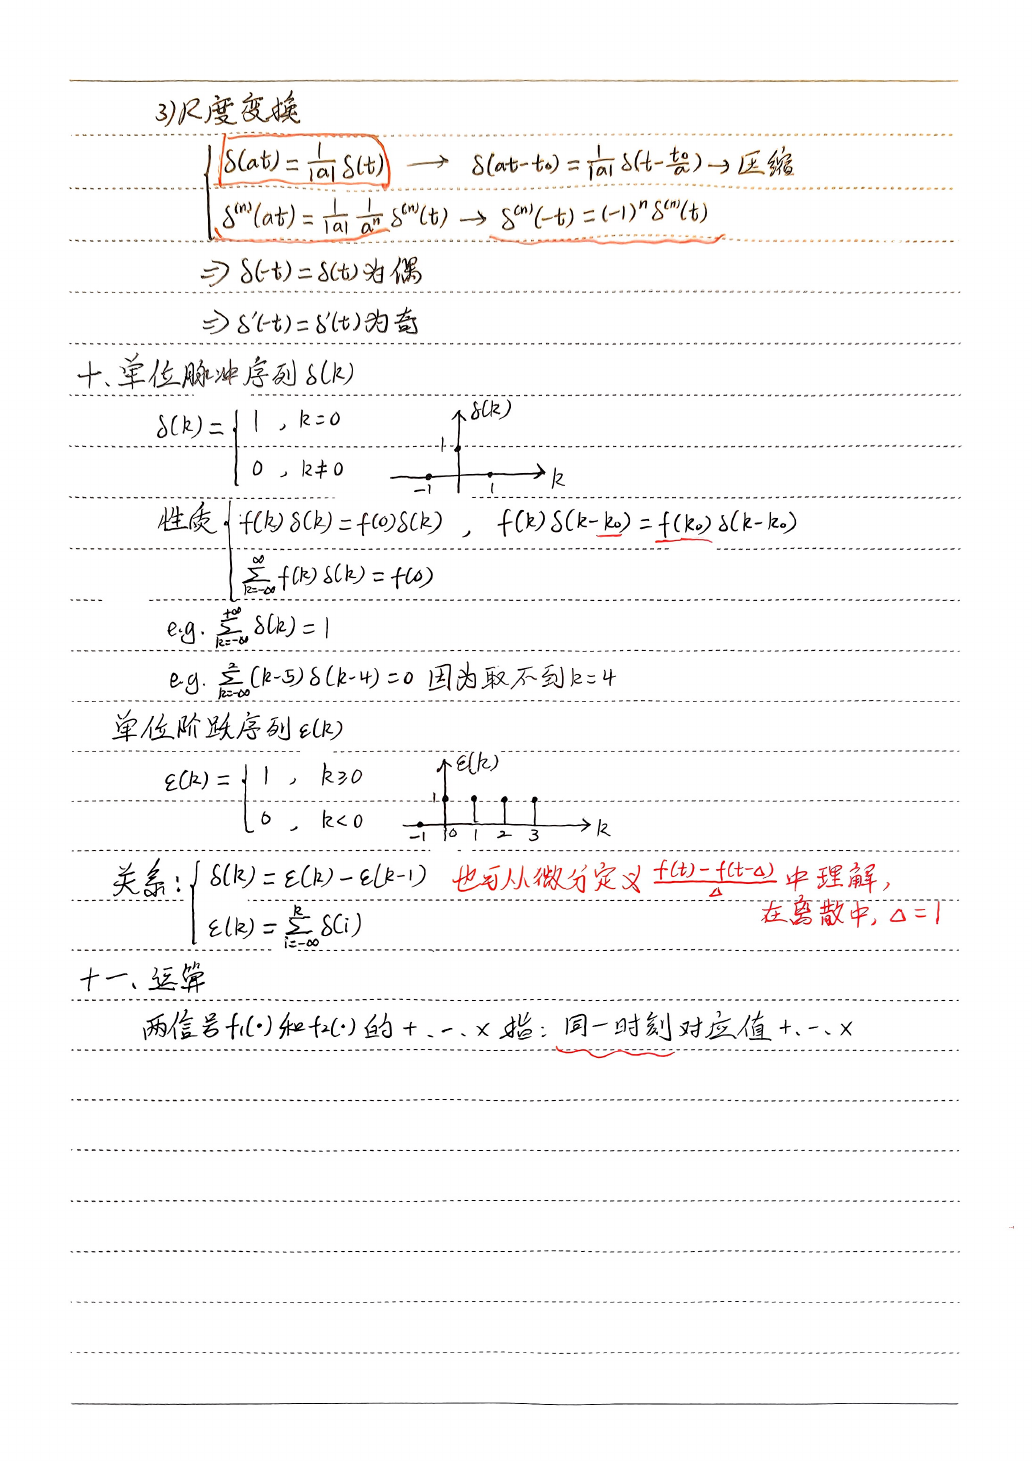 3)尺度变换
δ(at) = 1/|a| δ(t) → δ(at-t₀) = 1/|a| δ(t - t₀/a) → 压缩
δ⁽ⁿ⁾(at) = 1/|a| 1/aⁿ δ⁽ⁿ⁾(t) → δ⁽ⁿ⁾(-t) = (-1)ⁿ δ⁽ⁿ⁾(t)
⇒ δ(-t) = δ(t) 为偶
⇒ δ'(-t) = δ'(t) 为奇
十、单位脉冲序列 δ(k)
δ(k) = { 1 , k=0
0 , k≠0
δ(k)
1
-1 1 k
性质 { f(k)δ(k) = f(0)δ(k) , f(k)δ(k-k₀) = f(k₀)δ(k-k₀)
∑_{k=-∞}^{∞} f(k)δ(k) = f(0)
e.g. ∑_{k=-∞}^{+∞} δ(k) = 1
e.g. ∑_{k=-∞}^{2} (k-5)δ(k-4) = 0 因为取不到k=4
单位阶跃序列 ε(k)
ε(k) = { 1 , k≥0
0 , k<0
ε(k)
1
-1 0 1 2 3 k
关系: { δ(k) = ε(k) - ε(k-1) 也可从微分定义 f(t)-f(t-Δ)/Δ 中理解,
在离散中, Δ=1
ε(k) = ∑_{i=-∞}^{k} δ(i)
十一、运算
两信号f₁(·)和f₂(·)的 +、-、× 指: 同一时刻对应值 +、-、×